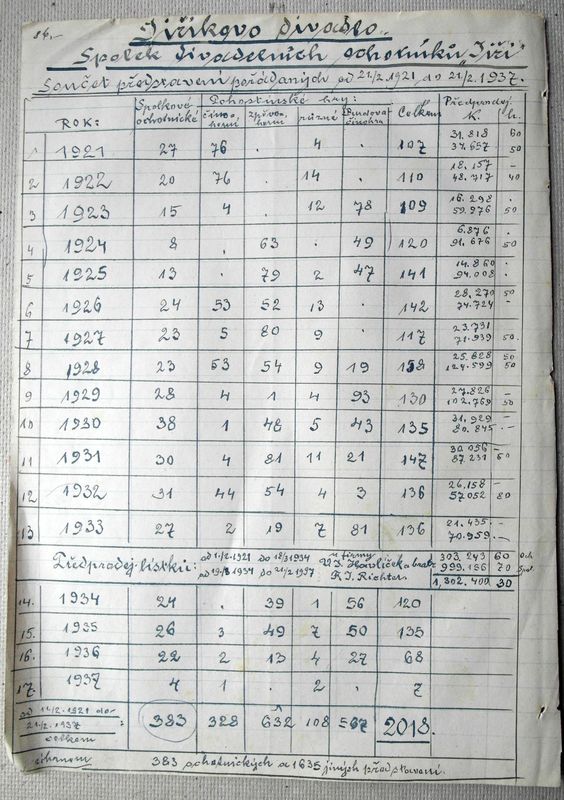 84.-
Jiříkovo divadlo.
Spolek divadelních ochotníků „Jiří"
Součet představení pořádaných od 21/2.1921 do 21/2.1937.
ROK: Spolkové ochotnické Pohostinské hry: Celkem Předprodej
činoherní zpěvoherní různé činohra K. h.
1 1921 27 76 . 4 . 107 31.818 60
37.657 50
2 1922 20 76 . 14 . 110 18.157 -
48.717 40
3 1923 15 4 . 12 78 109 16.298 .
59.976 50
4 1924 8 . 63 . 49 120 6.876 .
91.676 50
5 1925 13 . 79 2 47 141 14.860 .
94.008 .
6 1926 24 53 52 13 . 142 28.270 50
74.724 -
7 1927 23 5 80 9 . 117 23.731
71.939 50
8 1928 23 53 54 9 19 158 25.828 50
124.599 50
9 1929 28 4 1 4 93 130 27.826 -
102.769 50
10 1930 38 1 48 5 43 135 31.929 -
80.845 -
11 1931 30 4 81 11 21 147 30.056 -
87.231 60
12 1932 31 44 54 4 3 136 26.158 -
57052 80
13 1933 27 2 19 7 81 136 21.435 -
70.959 -
Předprodej lístků: od 1/2.1921 do 18/3 1934 u firmy V. J. Havlíček a bratr 303.243 60 och
od 19/3 1934 do 21/2 1937 R. J. Richters 999.156 70
1,302.400 30
14. 1934 24 . 39 1 56 120
15. 1935 26 3 49 7 50 135
16. 1936 22 2 13 4 27 68
17. 1937 4 1 . 2 . 7
od 11/2.1921 do 21/2.1937 celkem : 383 328 632 108 567 2018.
383 ochotnických a 1635 jiných představení.